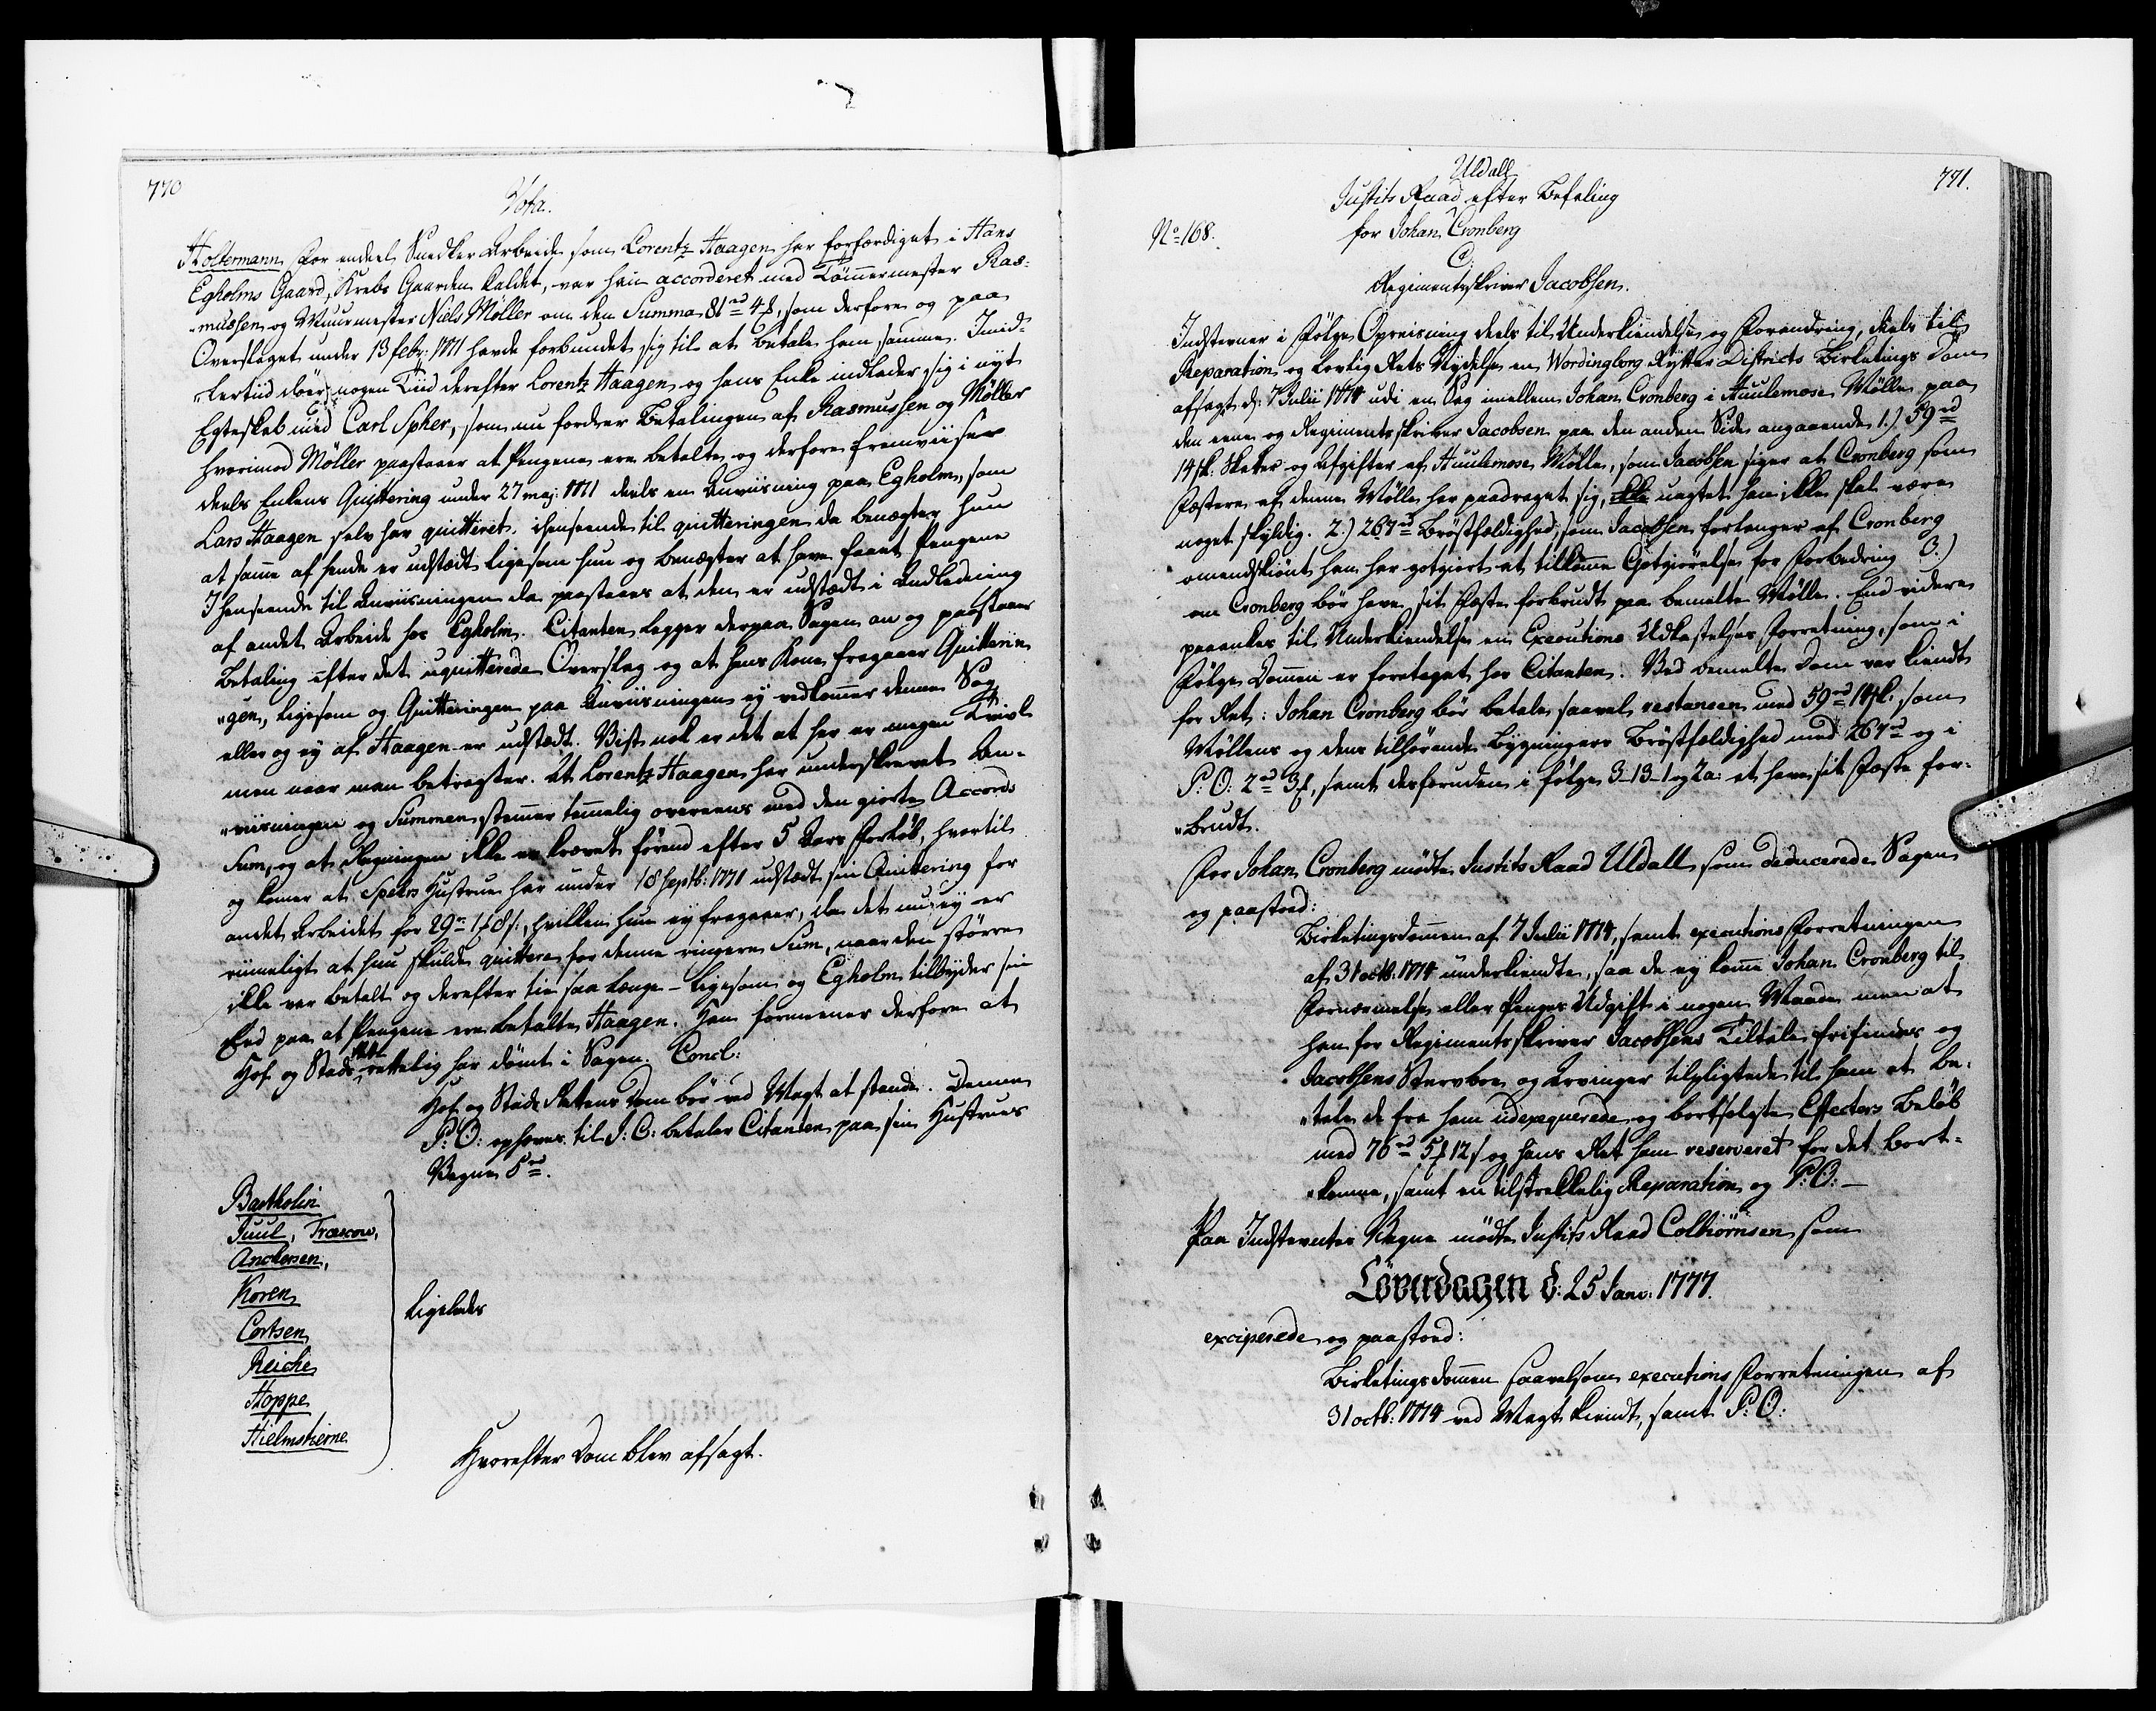 770
Vota.
Holtermann For endeel Snedker Arbeide som Lorentz Haagen har forfærdiget i Hans
Egholms Gaard, Krebs Gaarden kaldet, var han accorderet med Tømmermester Ras-
mussen og Muurmester Niels Møller om den Summa 81 rd 4 ß, som derfore og paa
Overslaget under 13 febr: 1771 havde forbundet sig til at betale ham samme. Imid-
lertiid døer nogen Tiid derefter Lorentz Haagen og hans Enke indlader sig i nyt
Egteskab med Carl Spher, som nu fordrer Betalingen af Rasmussen og Møller
hvorimod Møller paastaaer at Pengene ere betalte og derfore fremviiser
deels Enkens Quittering under 27 maj: 1771 deels en Anviisning paa Egholm, som
Lars Haagen selv har quitteret. ihenseende til quitteringen da benægter hun
at samme af hende er udstædt ligesom hun og benægter at have faaet Pengene
I henseende til Anviisningen da paastaaes at den er udstædt i Anledning
af andet Arbeide hos Egholm. Citanten lægger derpaa Sagen an og paastaaer
betaling efter det uquitterede Overslag og at hans Kone fragaaer Quitterin-
gen, ligesom og Quitteringen paa Anviisningen ey vedkommer denne Sag
eller og ey af Haagen er udstædt. Vist nok er det at her er megen Tvivl
men naar man betragter. At Lorentz Haagen har underskrevet An-
viisningen og Summen stemmer temmelig overeens med den giorte Accords
Sum, og at Regningen ikke er krævet førend efter 5 Aars Forløb, hvortil
og kommer at Spehrs Hustrue har under 18 septb: 1771 udstædt sin Quittering for
andet Arbeidet for 29 rd 1 ß 8 s., hvilken hun ey fragaaer, da det nu ey er
riimeligt at hun skulde quittere for denne ringere Sum, naar den større
ikke var betalt og derefter tie saa længe – ligesom og Egholm tilbyder sin
Eed paa at Pengene ere betalte Haagen. Han formener derfore at
Hof og Stads Rett rettelig har dømt i Sagen. Concl:
Hof og Stads Rettens Dom bør ved Magt at stande. Denne
P: O: ophæves til J: C: betaler Citanten paa sin Hustrues
Vegne 5 rd.
Bartholin
Juul, Træscow,
Anchersen,
Koren
Cortsen
Reiche
Hoppe
Hielmstierne
ligeledes
Hvorefter Dom blev afsagt.
771.
Uldall
Justits Raad efter Befaling
No 168.
for Johan Cronberg
C:
Regimentsskriver Jacobsen.
Indstevner i Følge Opreisning deels til Underkiendelse og Forandring, deels til
Reparation og lovlig Rets Nydelse en Wordingborg Rytter Districts Birketings Dom
afsagt d: 7 Julii 1774 udi en Sag imellem Johan Cronberg i Huulemose Mølle paa
den eene og Regimentsskriver Jacobsen paa den anden Side angaaende 1.) 59 rd
14 sk. Skatter og Afgifter af Huulemose Mølle, som Jacobsen siger at Cronberg som
Fæstere af denne Mølle har paadraget sig, uagtet han ikke skal være
noget skyldig. 2.) 267 rd Brøstfældighed, som Jacobsen forlanger af Cronberg
omendskiønt han har godtgiort at tilkomme Godtgiørelse for Forbedring 3.)
om Cronberg bør have sit Fæste forbrudt paa bemelte Mølle. End videre
paaankes til Underkiendelse en Executions Udkastelses Forretning, som i
Følge Dommen er foretaget hos Citanten. Ved bemelte Dom var kiendt
for Ret: Johan Cronberg bør betale saavel restancen med 59 rd 14 sk. som
Møllens og dens tilhørende Bygningers Brøstfældighed med 267 rd og i
P: O: 2 rd 3 ß, samt desforuden i følge 3-13-1 og 2 a: at have sit Fæste for-
brudt.
For Johan Cronberg mødte Justits Raad Uldall som deducerede Sagen
og paastod:
Birketingsdommen af 7 Julii 1774, samt executions Forretningen
af 31 octb: 1774 underkiendte, saa de ey komme Johan Cronberg til
Fornærmelse eller Penges Udgift i nogen Maade men at
han for Regimentsskriver Jacobsens Tiltale frifindes og
Jacobsens Stervboe og Arvinger tilpligtede til ham at be-
tale de fra ham udexequerede og bortsolgte Effecters Beløb
med 76 rd 5 ß 12 s og hans Ret ham reserveret for det bort-
komne, samt en tilstrækkelig Reparation og P: O: –
Paa Indstevntes Vegne mødte Justits Raad Colbiørnsen som
Löverdagen d: 25 Janv: 1777.
exciperede og paastod:
Birketingsdommen saavelsom executions Forretningen af
31 octb: 1774 ved Magt kiendt, samt P: O: